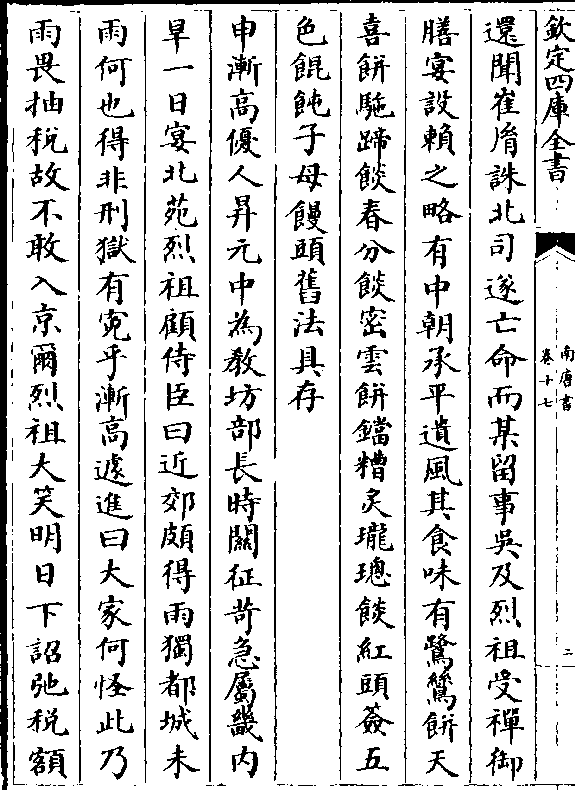 欽定四庫全書
南唐書
卷十七
二
還聞崔𦙍誅北司遂亡命而某留事吳及烈祖受禪御
膳宴設賴之略有中朝承平遺風其食味有鷺鷥餅天
喜餅駞蹄餤春分餤密雲餅鐺糟炙瓏璁餤紅頭簽五
色餛飩子母饅頭舊法具存
申漸髙優人昇元中為教坊部長時關征苛急屬畿内
旱一日宴北苑烈祖顧侍臣曰近郊頗得雨獨都城未
雨何也得非刑獄有寃乎漸髙遽進曰大家何怪此乃
雨畏抽税故不敢入京爾烈祖大笑明日下詔弛税額